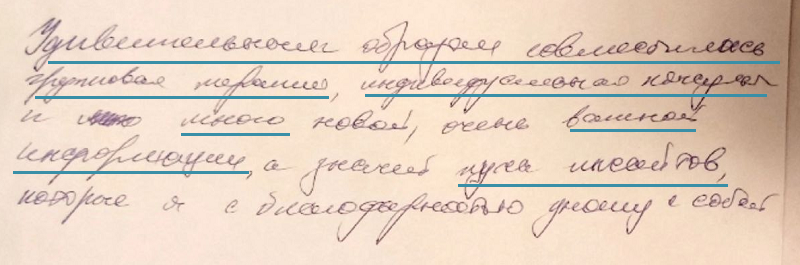 Удивительным образом совместилась
групповая терапия, индивидуальная консульт
и много новой, очень важной
информации, а значит куча инсайтов,
которые я с благодарностью уношу с собой